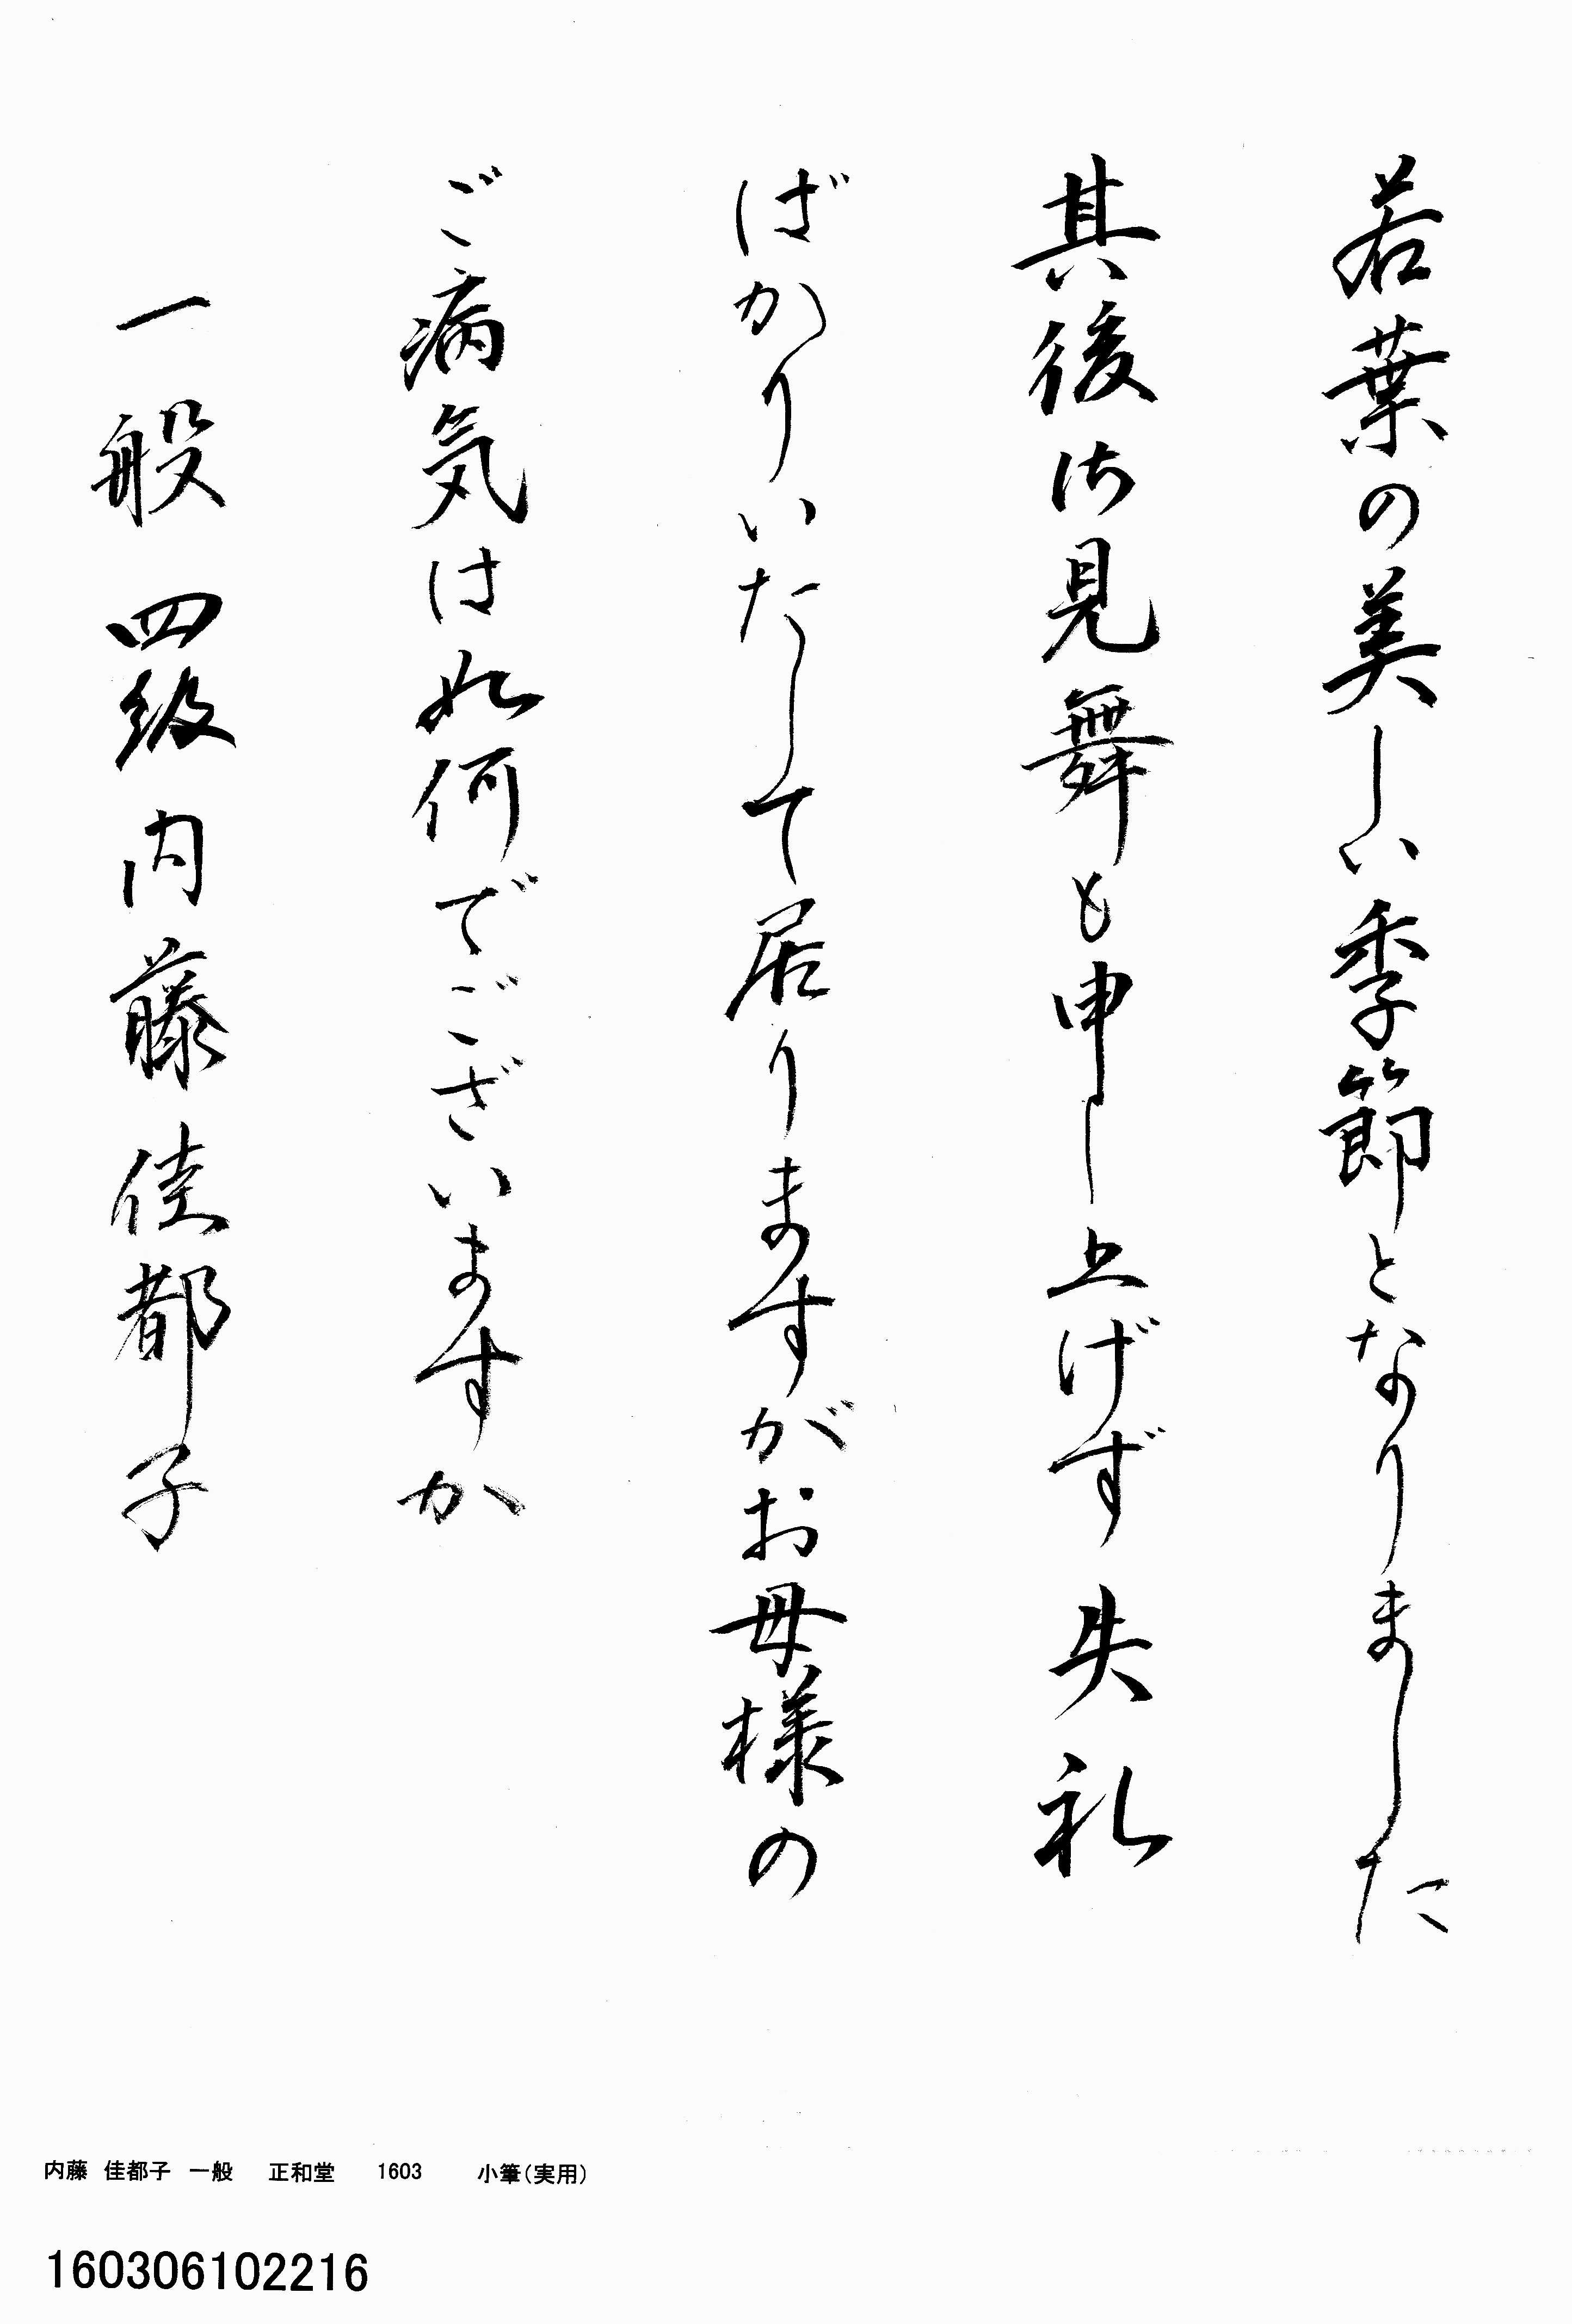 若葉の美しい季節となりました
其後御見舞も申し上げず失礼
ばかりいたして居りますがお母様の
ご病気は如何でございますか
一般 四級 内藤佳都子
内藤 佳都子 一般 正和堂 1603 小筆(実用)
160306102216